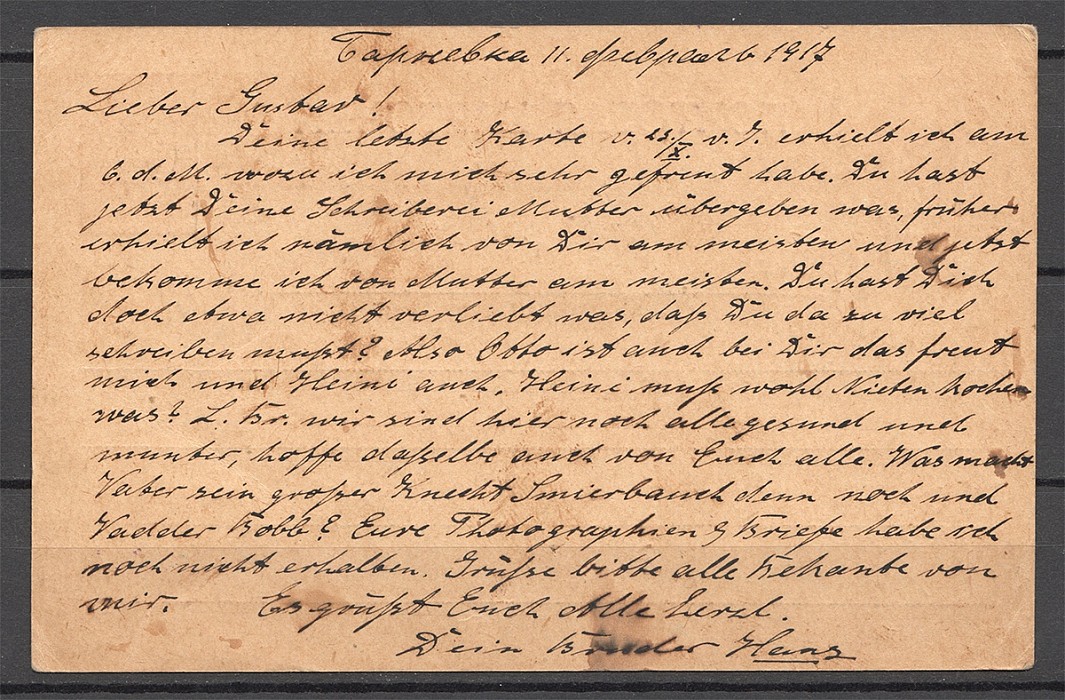 Барневка 11. февраль 1917
Lieber Gustav!
Deine letzte Karte v. 23./X. v. J. erhielt ich am
6. d. M. wozu ich mich sehr gefreut habe. Du hast
jetzt Deine Schreiberei Mutter übergeben was, früher
erhielt ich nämlich von Dir am meisten und jetzt
bekomme ich von Mutter am meisten. Du hast Dich
doch etwa nicht verliebt was, daß Du da zu viel
schreiben mußt? Also Otto ist auch bei Dir das freut
mich und Heini auch. Heini muß wohl Nieten kochen
was? L. Br. wir sind hier noch alle gesund und
munter, hoffe daßelbe auch von Euch alle. Was macht
Vater sein großer Knecht Smierbauch denn noch und
Vadder Bobb? Eure Photographien & Briefe habe ich
noch nicht erhalten. Grüße bitte alle Bekante von
mir. Es grüßt Euch Alle herzl.
Dein Bruder Hans